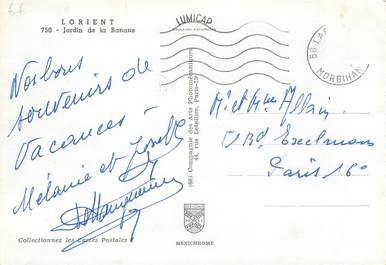 LORIENT
750 - Jardin de la Banane
LUMICAP
56 LA
MORBIHAN
Nos bons
souvenirs de
Vacances -
Mélanie et
(66) Compagnie des Arts Photomécaniques
44, rue Letellier, Paris-15
Mr et Mme Allain
Bd. Exelmans
Paris 16e
Collectionnez les Cartes Postales
MEXICHROME